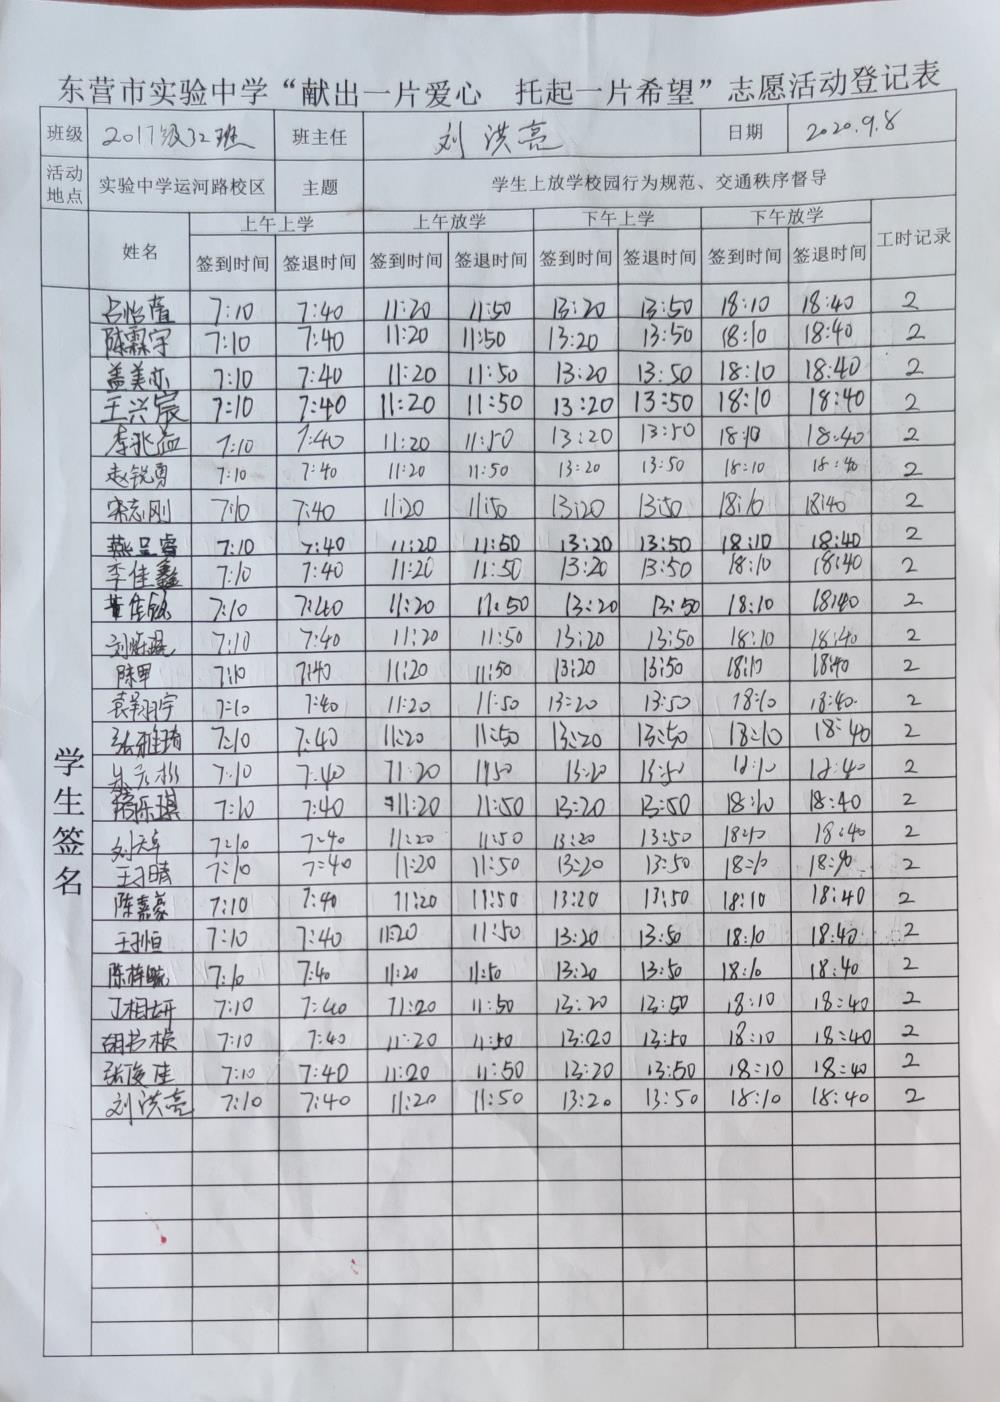 东营市实验中学“献出一片爱心 托起一片希望”志愿活动登记表
班级 2017级32班 班主任 刘洪亮 日期 2020.9.8
活动地点 实验中学运河路校区 主题 学生上放学校园行为规范、交通秩序督导
姓名 上午上学 上午放学 下午上学 下午放学 工时记录
签到时间 签退时间 签到时间 签退时间 签到时间 签退时间 签到时间 签退时间
学生签名
吕怡萱 7:10 7:40 11:20 11:50 13:20 13:50 18:10 18:40 2
陈霖宇 7:10 7:40 11:20 11:50 13:20 13:50 18:10 18:40 2
盖美亦 7:10 7:40 11:20 11:50 13:20 13:50 18:10 18:40 2
王兴宸 7:10 7:40 11:20 11:50 13:20 13:50 18:10 18:40 2
李兆益 7:10 7:40 11:20 11:50 13:20 13:50 18:10 18:40 2
赵锐勇 7:10 7:40 11:20 11:50 13:20 13:50 18:10 18:40 2
宋志刚 7:10 7:40 11:20 11:50 13:20 13:50 18:10 18:40 2
燕呈睿 7:10 7:40 11:20 11:50 13:20 13:50 18:10 18:40 2
李佳鑫 7:10 7:40 11:20 11:50 13:20 13:50 18:10 18:40 2
7:10 7:40 11:20 11:50 13:20 13:50 18:10 18:40 2
7:10 7:40 11:20 11:50 13:20 13:50 18:10 18:40 2
陈甲 7:10 7:40 11:20 11:50 13:20 13:50 18:10 18:40 2
袁翔宇 7:10 7:40 11:20 11:50 13:20 13:50 18:10 18:40 2
张雅琦 7:10 7:40 11:20 11:50 13:20 13:50 18:10 18:40 2
7:10 7:40 11:20 11:50 13:20 13:50 18:10 18:40 2
7:10 7:40 11:20 11:50 13:20 13:50 18:10 18:40 2
7:10 7:40 11:20 11:50 13:20 13:50 18:10 18:40 2
7:10 7:40 11:20 11:50 13:20 13:50 18:10 18:40 2
陈嘉豪 7:10 7:40 11:20 11:50 13:20 13:50 18:10 18:40 2
7:10 7:40 11:20 11:50 13:20 13:50 18:10 18:40 2
7:10 7:40 11:20 11:50 13:20 13:50 18:10 18:40 2
丁相妍 7:10 7:40 11:20 11:50 13:20 13:50 18:10 18:40 2
胡书桢 7:10 7:40 11:20 11:50 13:20 13:50 18:10 18:40 2
张俊佳 7:10 7:40 11:20 11:50 13:20 13:50 18:10 18:40 2
刘洪亮 7:10 7:40 11:20 11:50 13:20 13:50 18:10 18:40 2